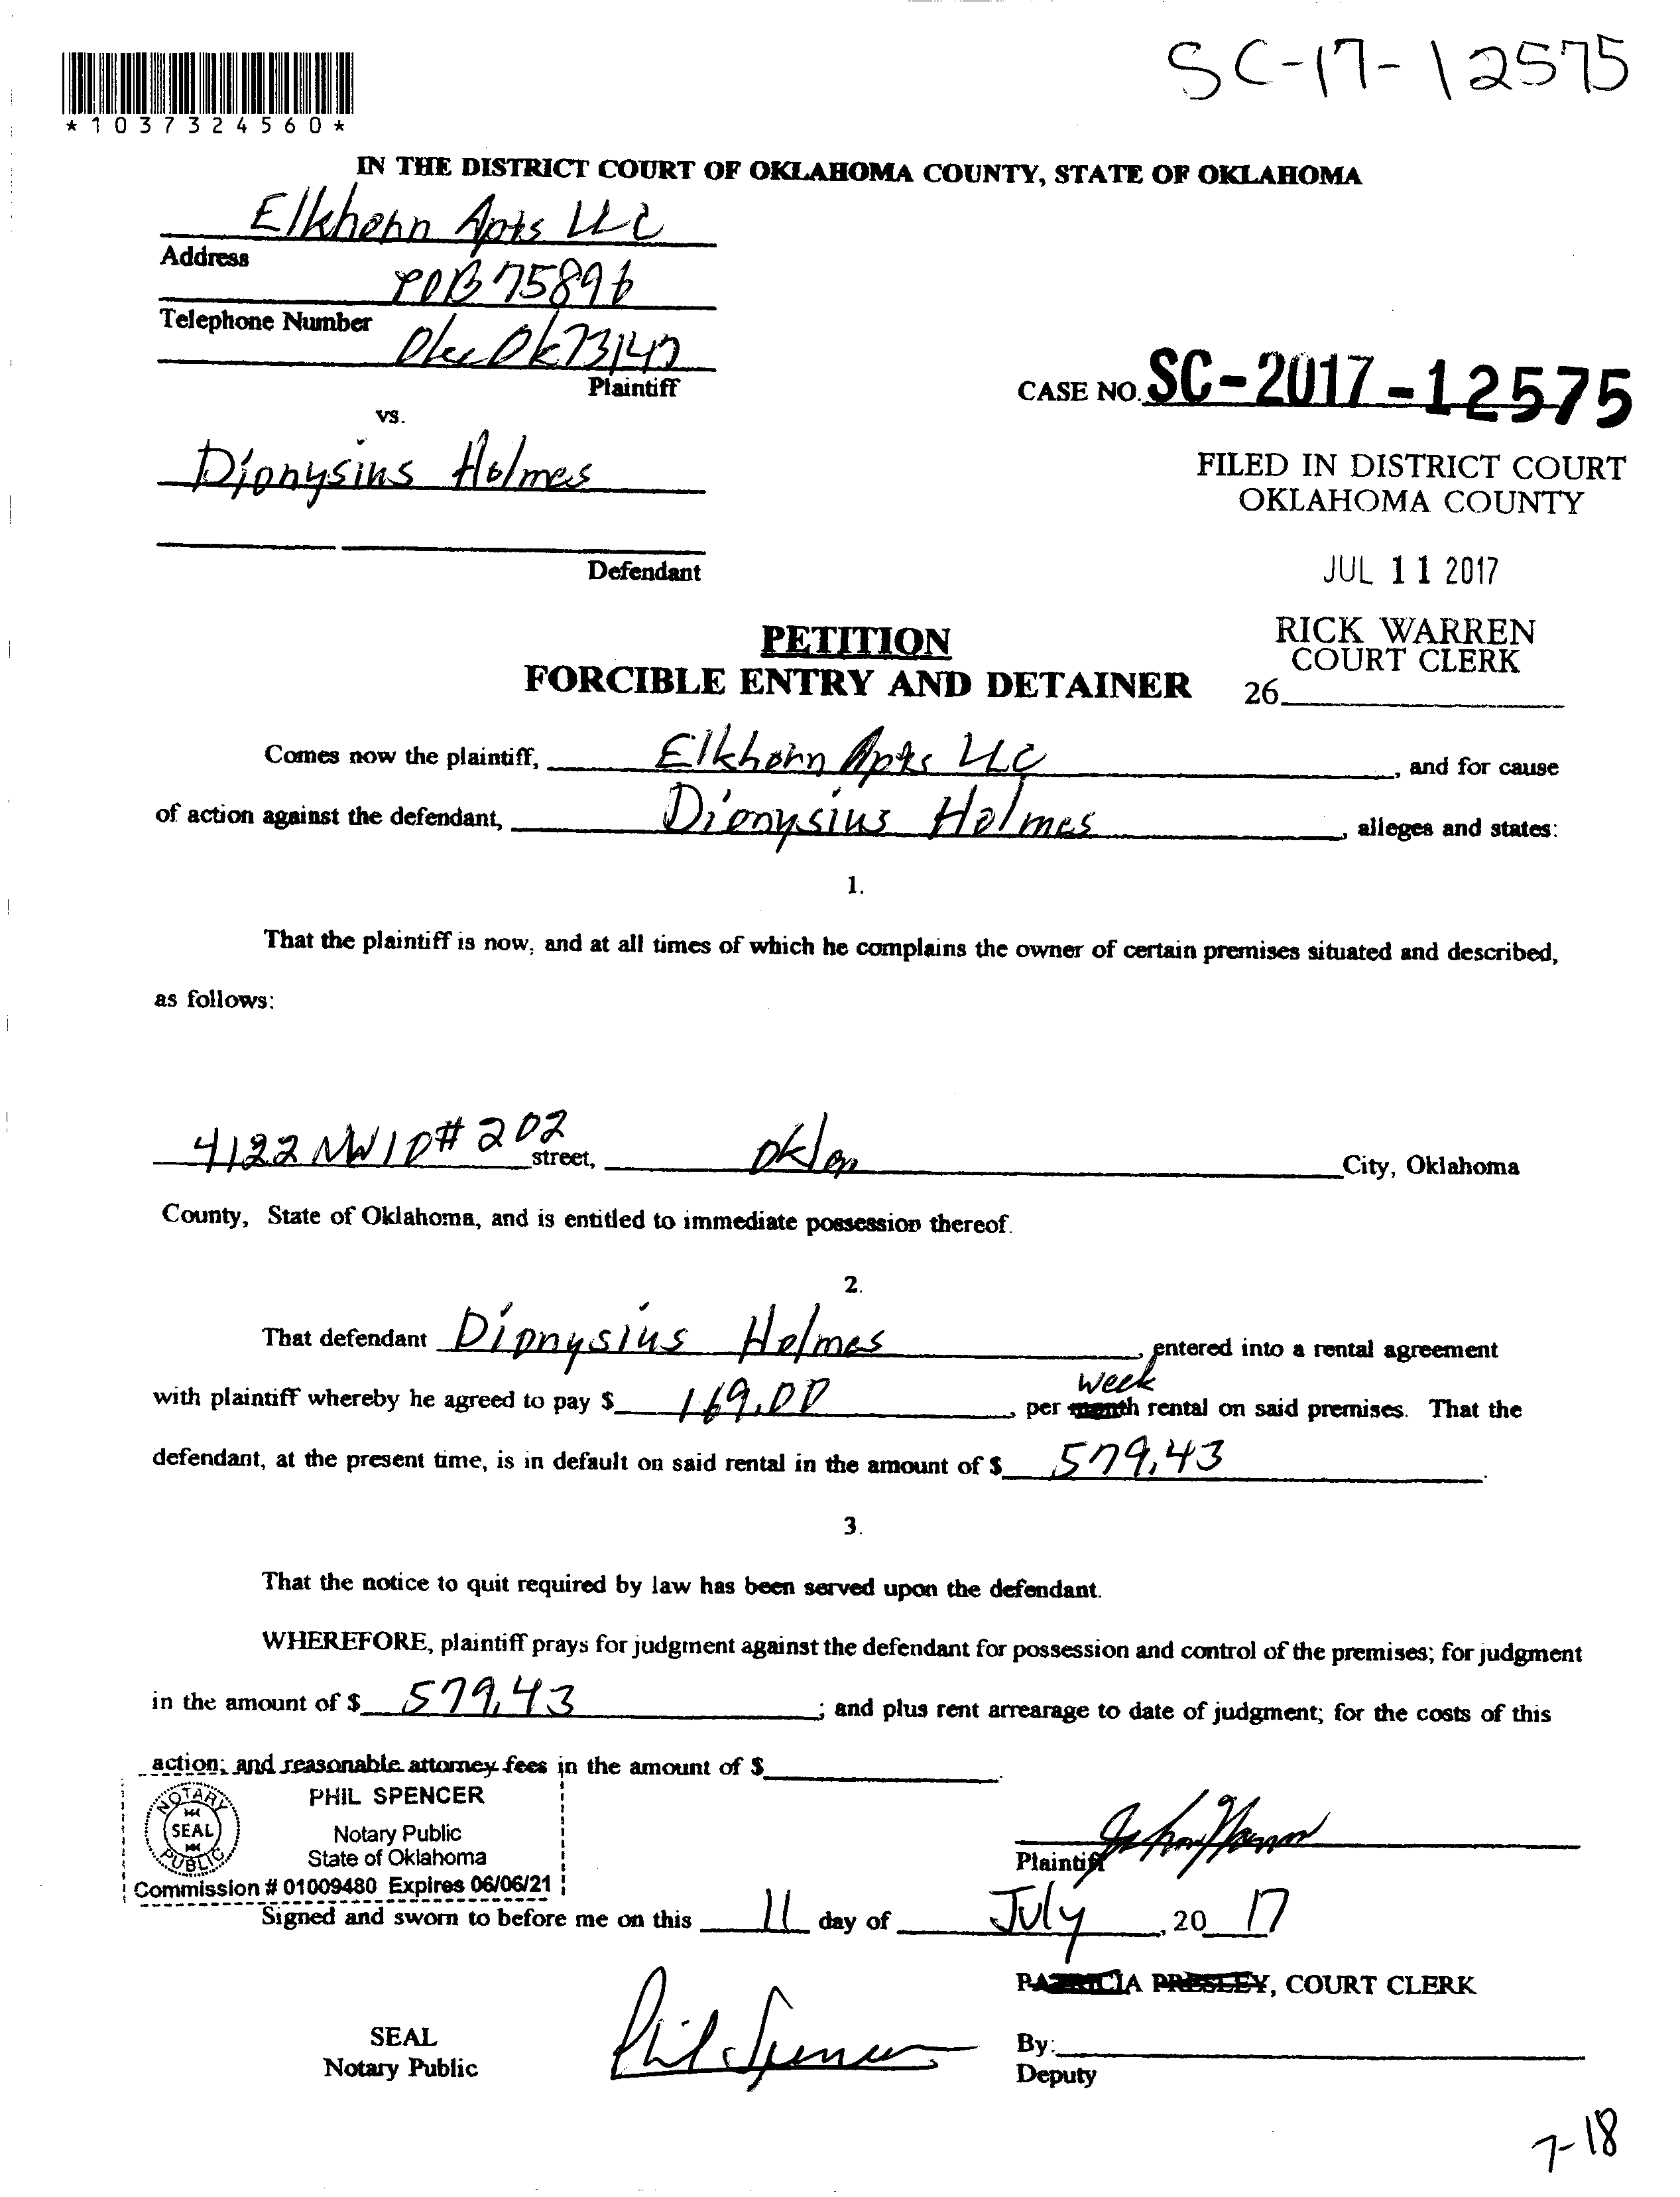 SC-17-12575
*1037324560*
IN THE DISTRICT COURT OF OKLAHOMA COUNTY, STATE OF OKLAHOMA
Elkhorn Apts LLC
Address
POB 75896
Telephone Number
Okc Ok 73147
Plaintiff
CASE NO. SC-2017-12575
vs.
Dionysius Holmes
FILED IN DISTRICT COURT
OKLAHOMA COUNTY
Defendant
JUL 11 2017
RICK WARREN
COURT CLERK
26
PETITION
FORCIBLE ENTRY AND DETAINER
Comes now the plaintiff, Elkhorn Apts LLC, and for cause
of action against the defendant, Dionysius Holmes, alleges and states:
1.
That the plaintiff is now, and at all times of which he complains the owner of certain premises situated and described,
as follows:
4122 NW 10 # 202 street, City, Oklahoma
County, State of Oklahoma, and is entitled to immediate possession thereof.
2.
That defendant Dionysius Holmes, entered into a rental agreement
week
with plaintiff whereby he agreed to pay $ 169.00, per month rental on said premises. That the
defendant, at the present time, is in default on said rental in the amount of $ 579.43.
3.
That the notice to quit required by law has been served upon the defendant.
WHEREFORE, plaintiff prays for judgment against the defendant for possession and control of the premises; for judgment
in the amount of $ 579.43; and plus rent arrearage to date of judgment; for the costs of this
action; and reasonable attorney fees in the amount of $.
NOTARY PUBLIC
SEAL
PHIL SPENCER
Notary Public
State of Oklahoma
Commission # 01009480 Expires 06/06/21
Plaintiff
Signed and sworn to before me on this 11 day of July, 20 17
PATRICIA PRESLEY, COURT CLERK
SEAL
Notary Public
Phil Spencer
By:
Deputy
7-18